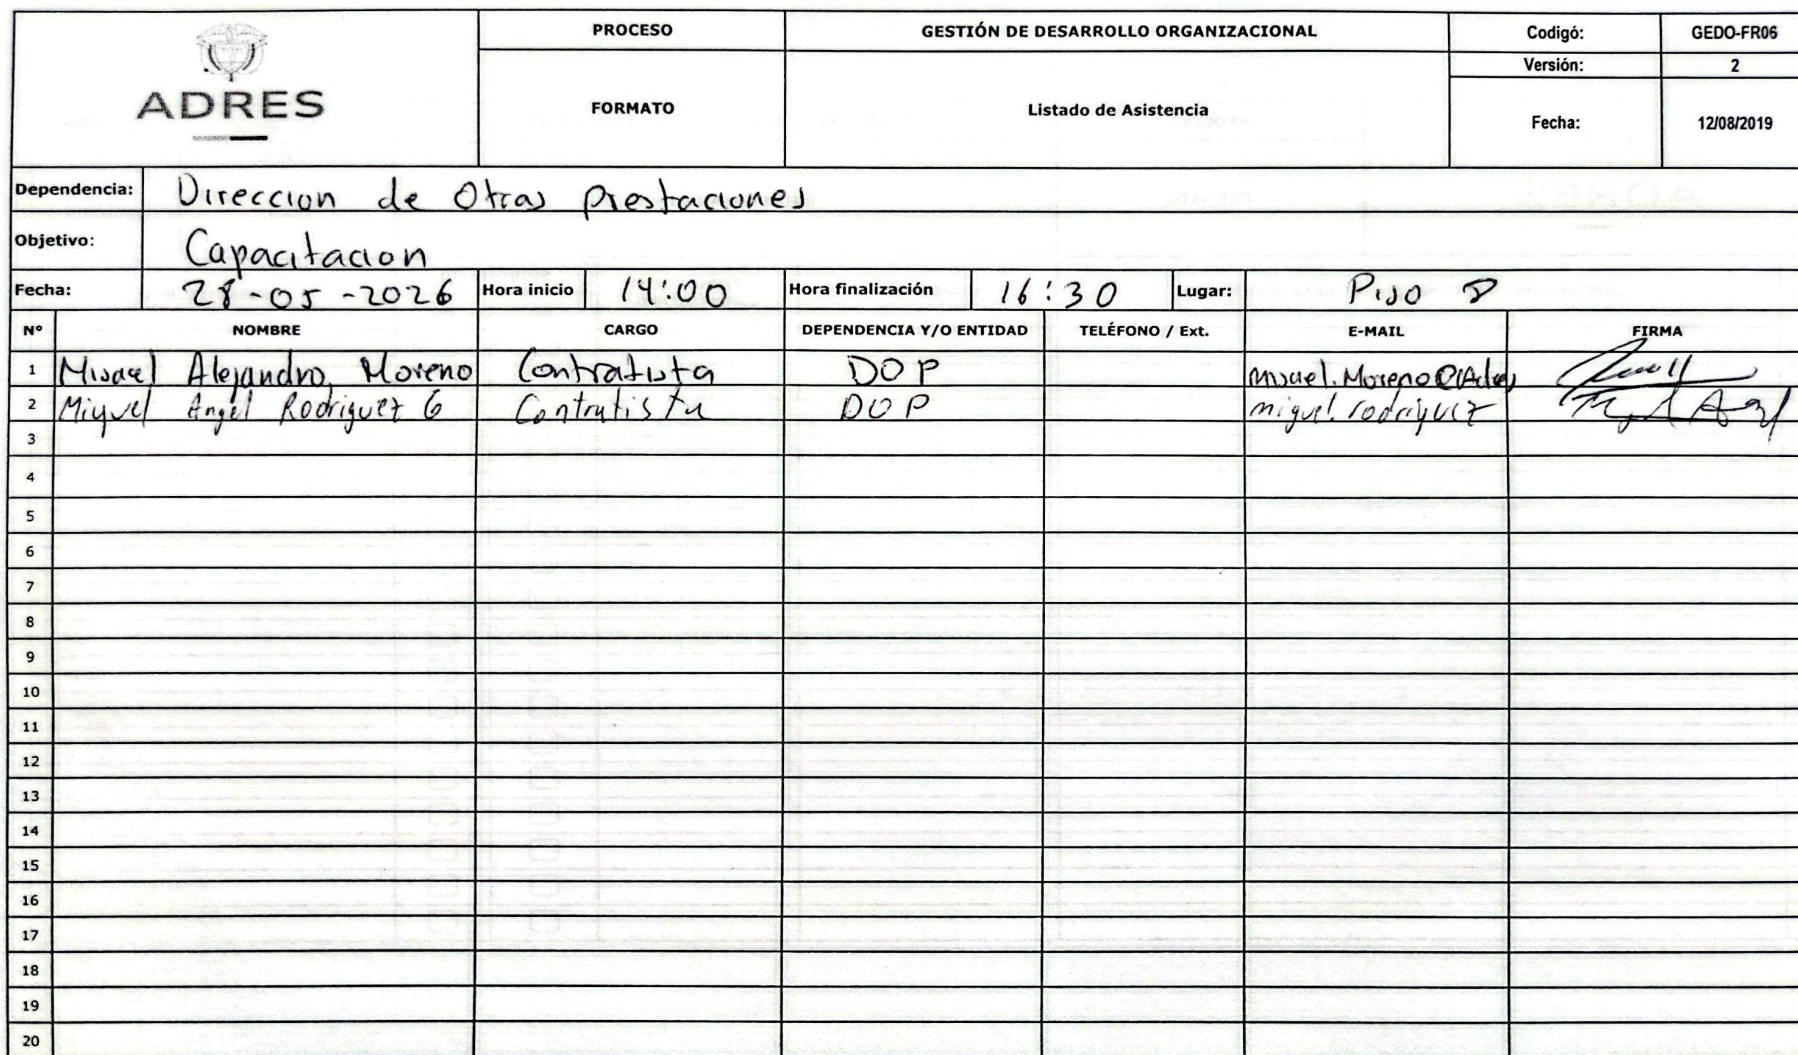 PROCESO GESTIÓN DE DESARROLLO ORGANIZACIONAL Codigó: GEDO-FR06
Versión: 2
ADRES FORMATO Listado de Asistencia Fecha: 12/08/2019
Dependencia: Direccion de Otras prestaciones
Objetivo: Capacitacion
Fecha: 28-05-2026 Hora inicio 14:00 Hora finalización 16:30 Lugar: Piso 8
Nº NOMBRE CARGO DEPENDENCIA Y/O ENTIDAD TELÉFONO / Ext. E-MAIL FIRMA
1 Misael Alejandro Moreno Contratista DOP misael.Moreno@Adres
2 Miguel Angel Rodriguez G Contratista DOP miguel.rodriguez
3
4
5
6
7
8
9
10
11
12
13
14
15
16
17
18
19
20